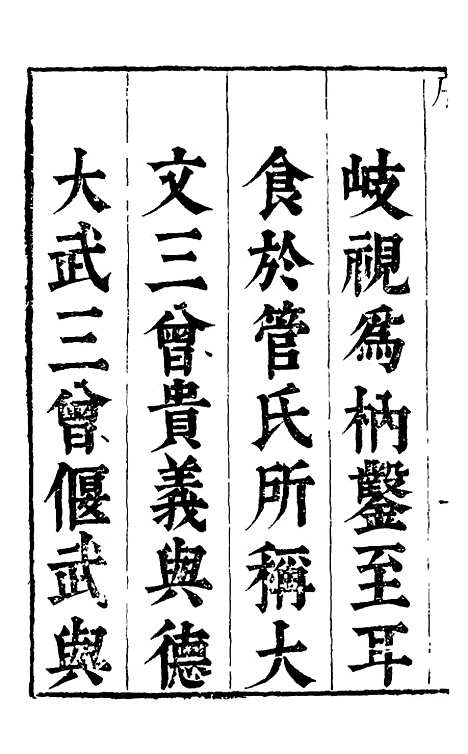 岐視爲枘鑿至耳
食於管氏所稱大
文三曾貴義與德
大武三曾偃武與